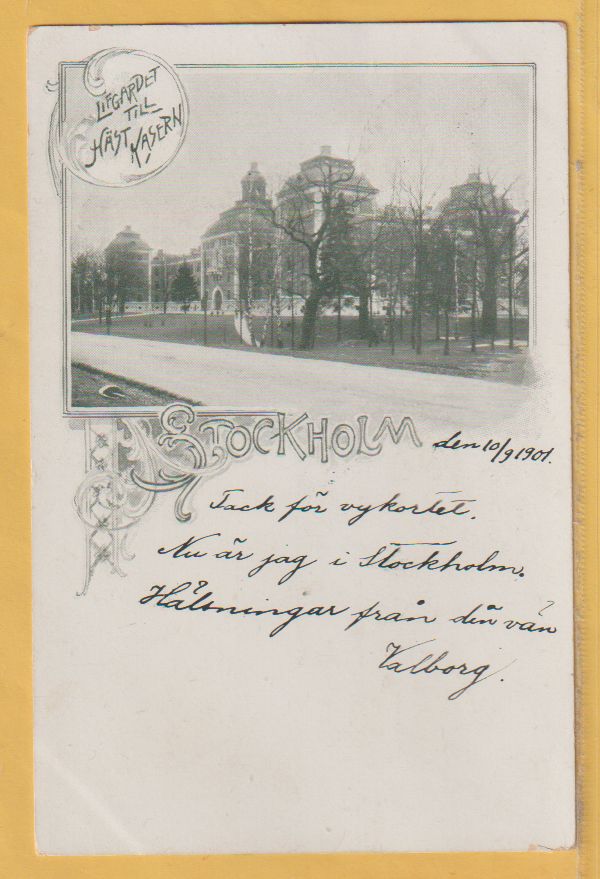 LIFGARDET
TILL
HÄST KASERN
STOCKHOLM
den 10/9 1901.
Tack för vykortet.
Nu är jag i Stockholm.
Hälsningar från din vän
Valborg.